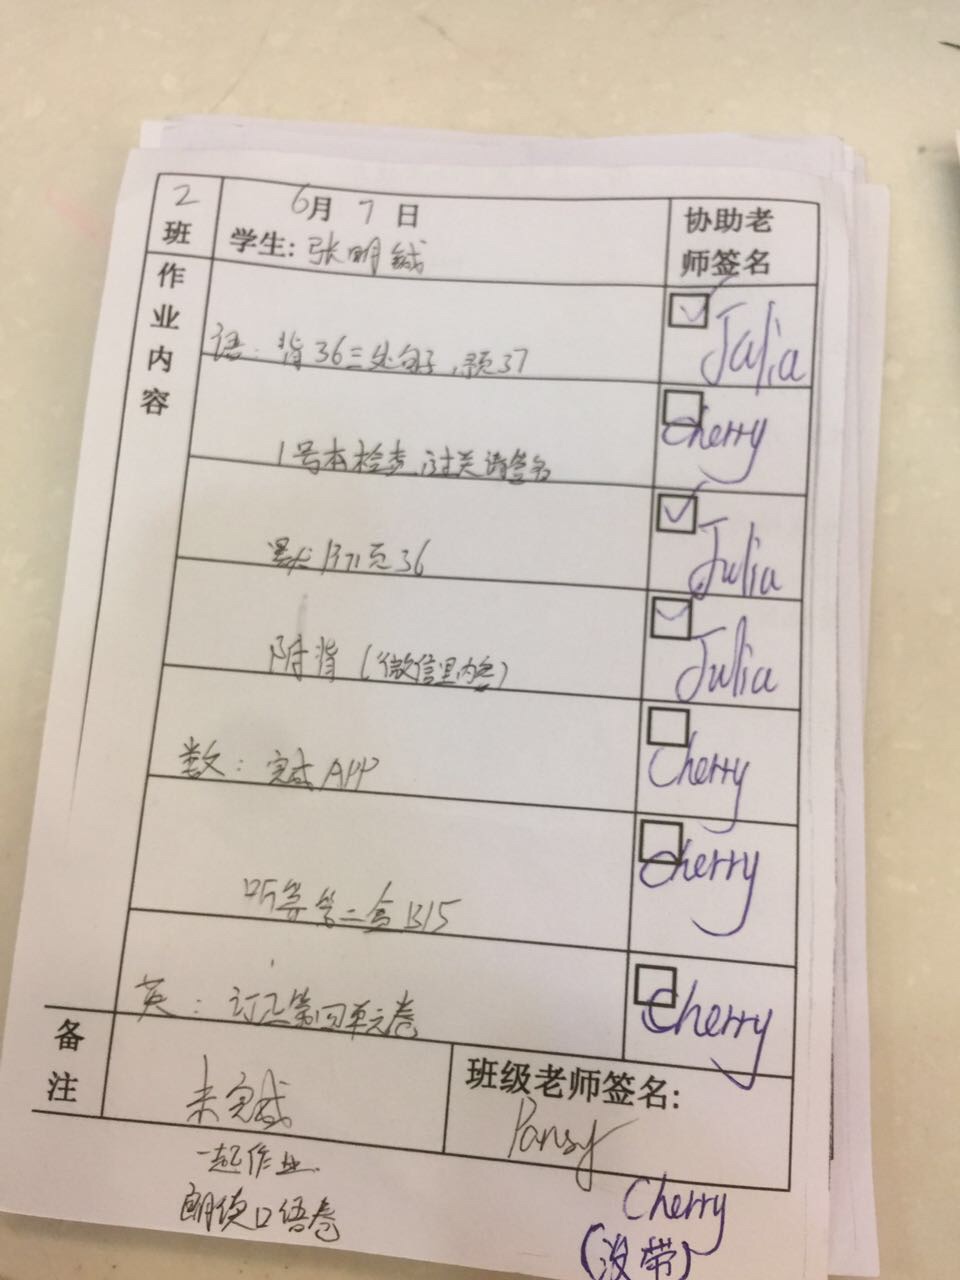 2班
6月7日
学生: 张明铖
协助老师签名
作业内容
语: 背36三处句子,预37
Julia
1号本检查,过关请签名
Cherry
36
Julia
附背(微信里内容)
Julia
数: 完成APP
Cherry
B15
Cherry
英: 订正第四单元卷
Cherry
备注
未完成
班级老师签名:
Pansy
一起作业
朗读口语卷
Cherry
(没带)